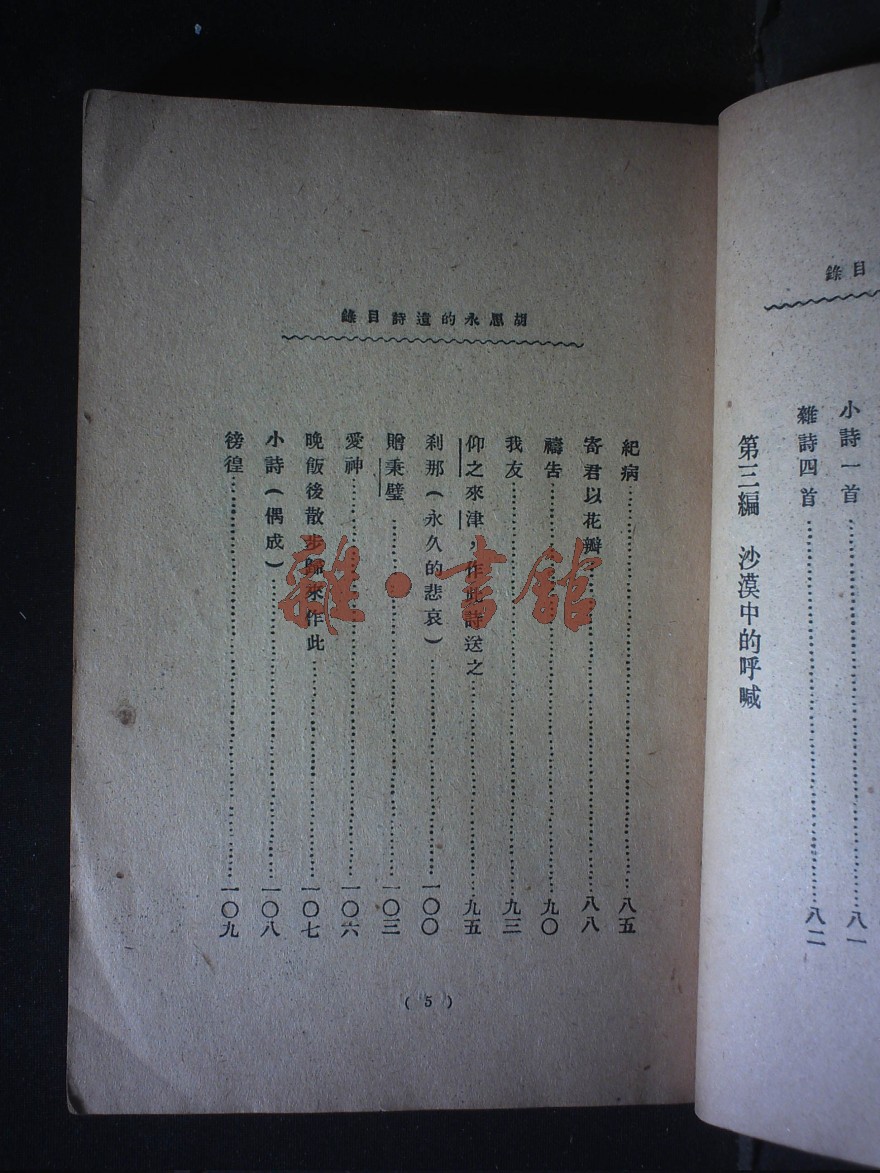 錄目
小詩一首……八一
雜詩四首……八二
第三編 沙漠中的呼喊
胡思永的遺詩目錄
紀病……八五
寄君以花瓣……八八
禱告……九〇
我友……九三
仰之來津,作此詩送之……九五
刹那(永久的悲哀)……一〇〇
贈秉璧……一〇三
愛神……一〇六
晚飯後散步歸來作此……一〇七
小詩(偶成)……一〇八
徬徨……一〇九
(5)
雜·書館